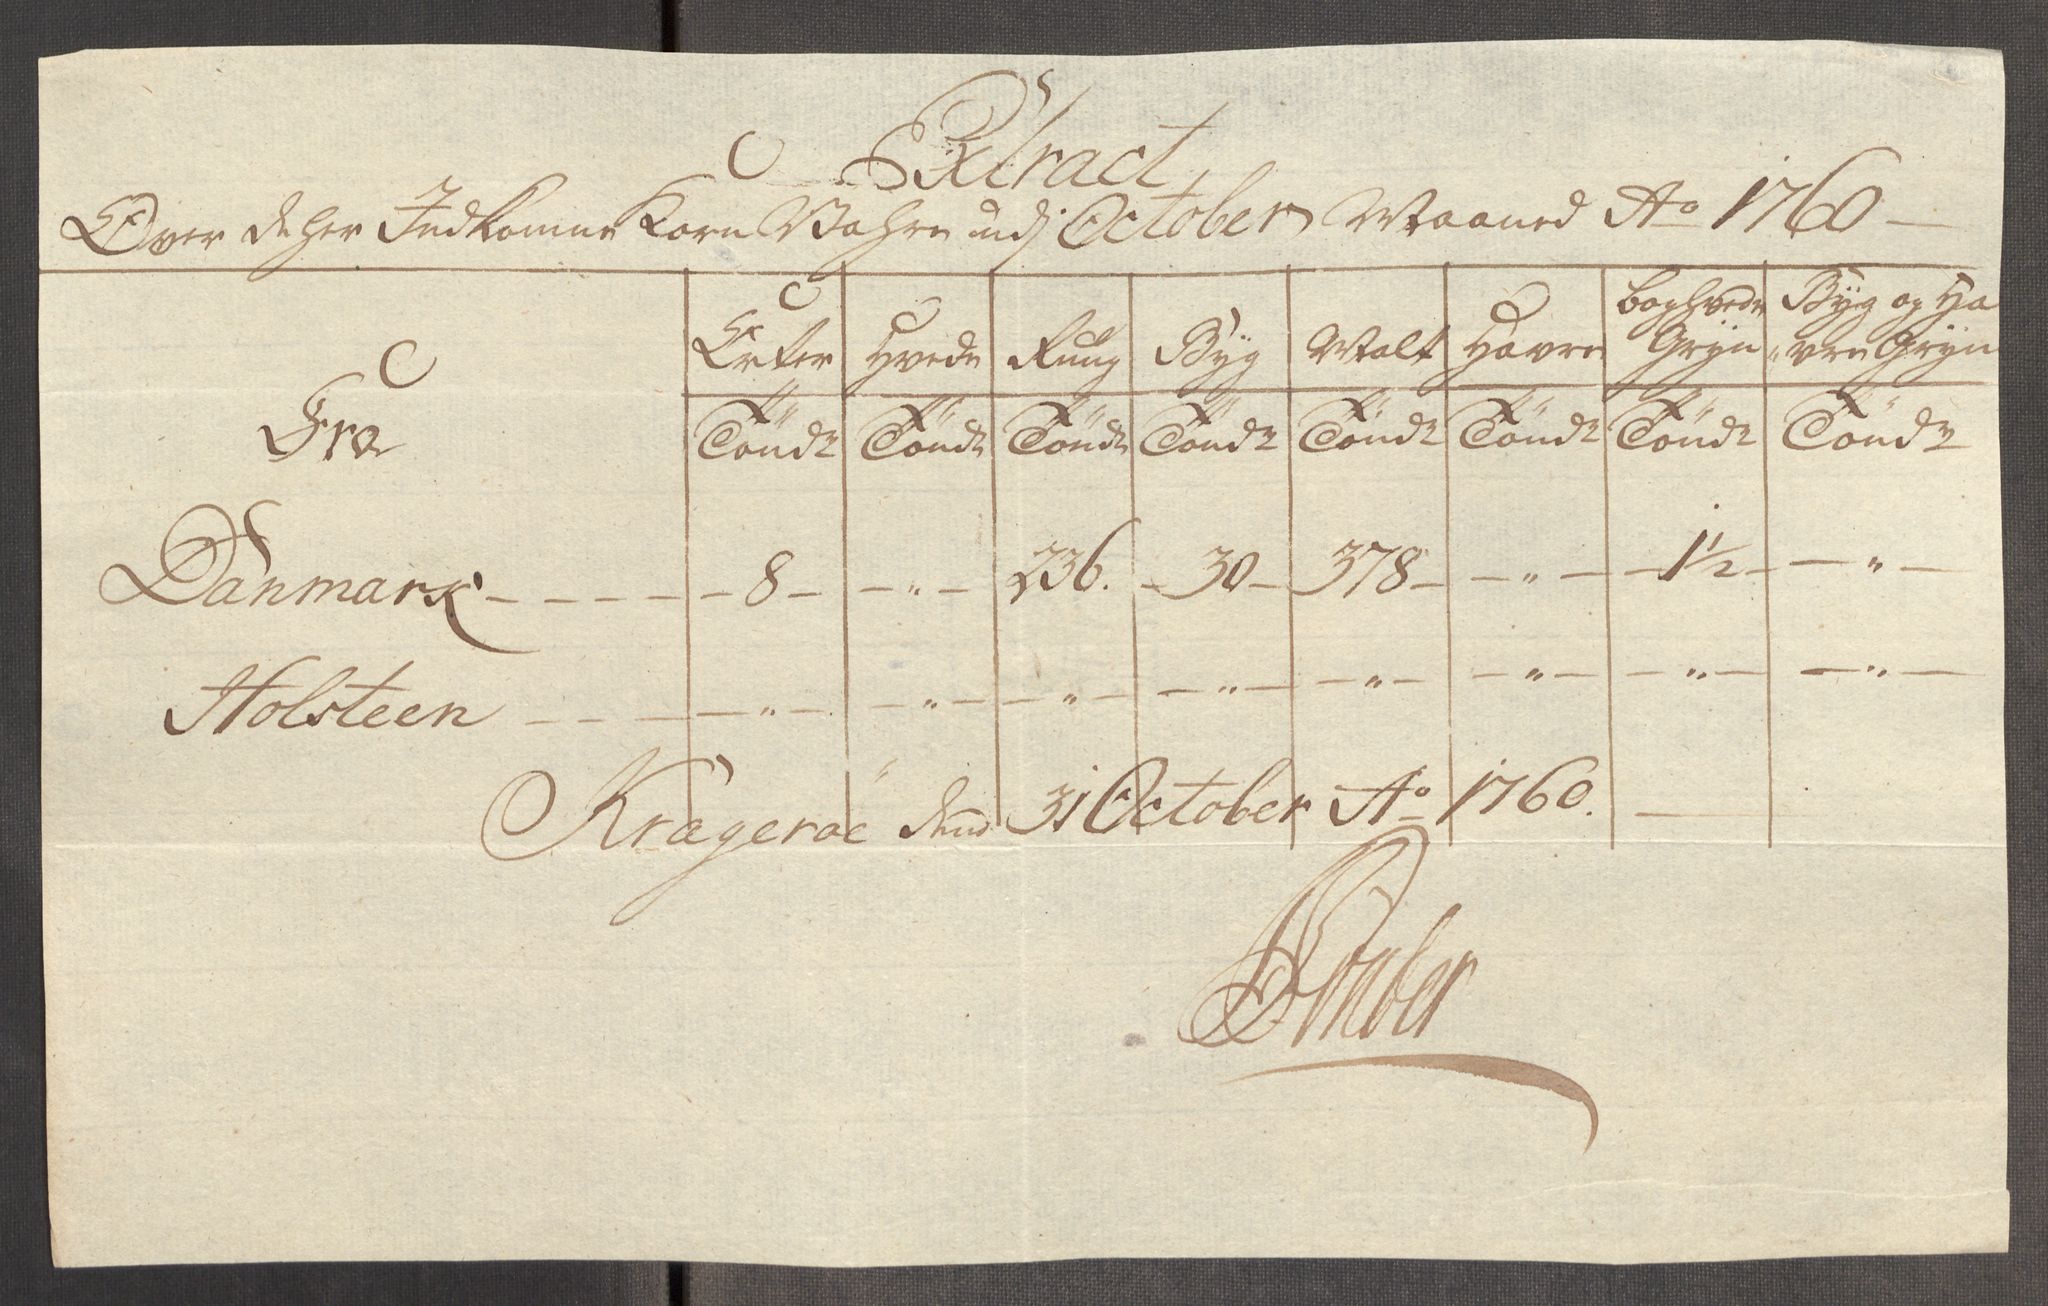 Extract
Over de her Indkomne Korn Vahre udj October Maaned Ao 1760
Fra
Erter Hvede Rug Byg Malt Havre Boghvede Gryn Byg og Havre Gryn
Tönd Tönd Tönd Tönd Tönd Tönd Tönd Tönd
Danmark - - - - - 8 - - " - 236. - 30 - 378 - - " - - 1½ - - " -
Holsteen - - - - " - - " - - " - - " - - " - - " - - " - - " -
Krageröe den 31 October Ao 1760.